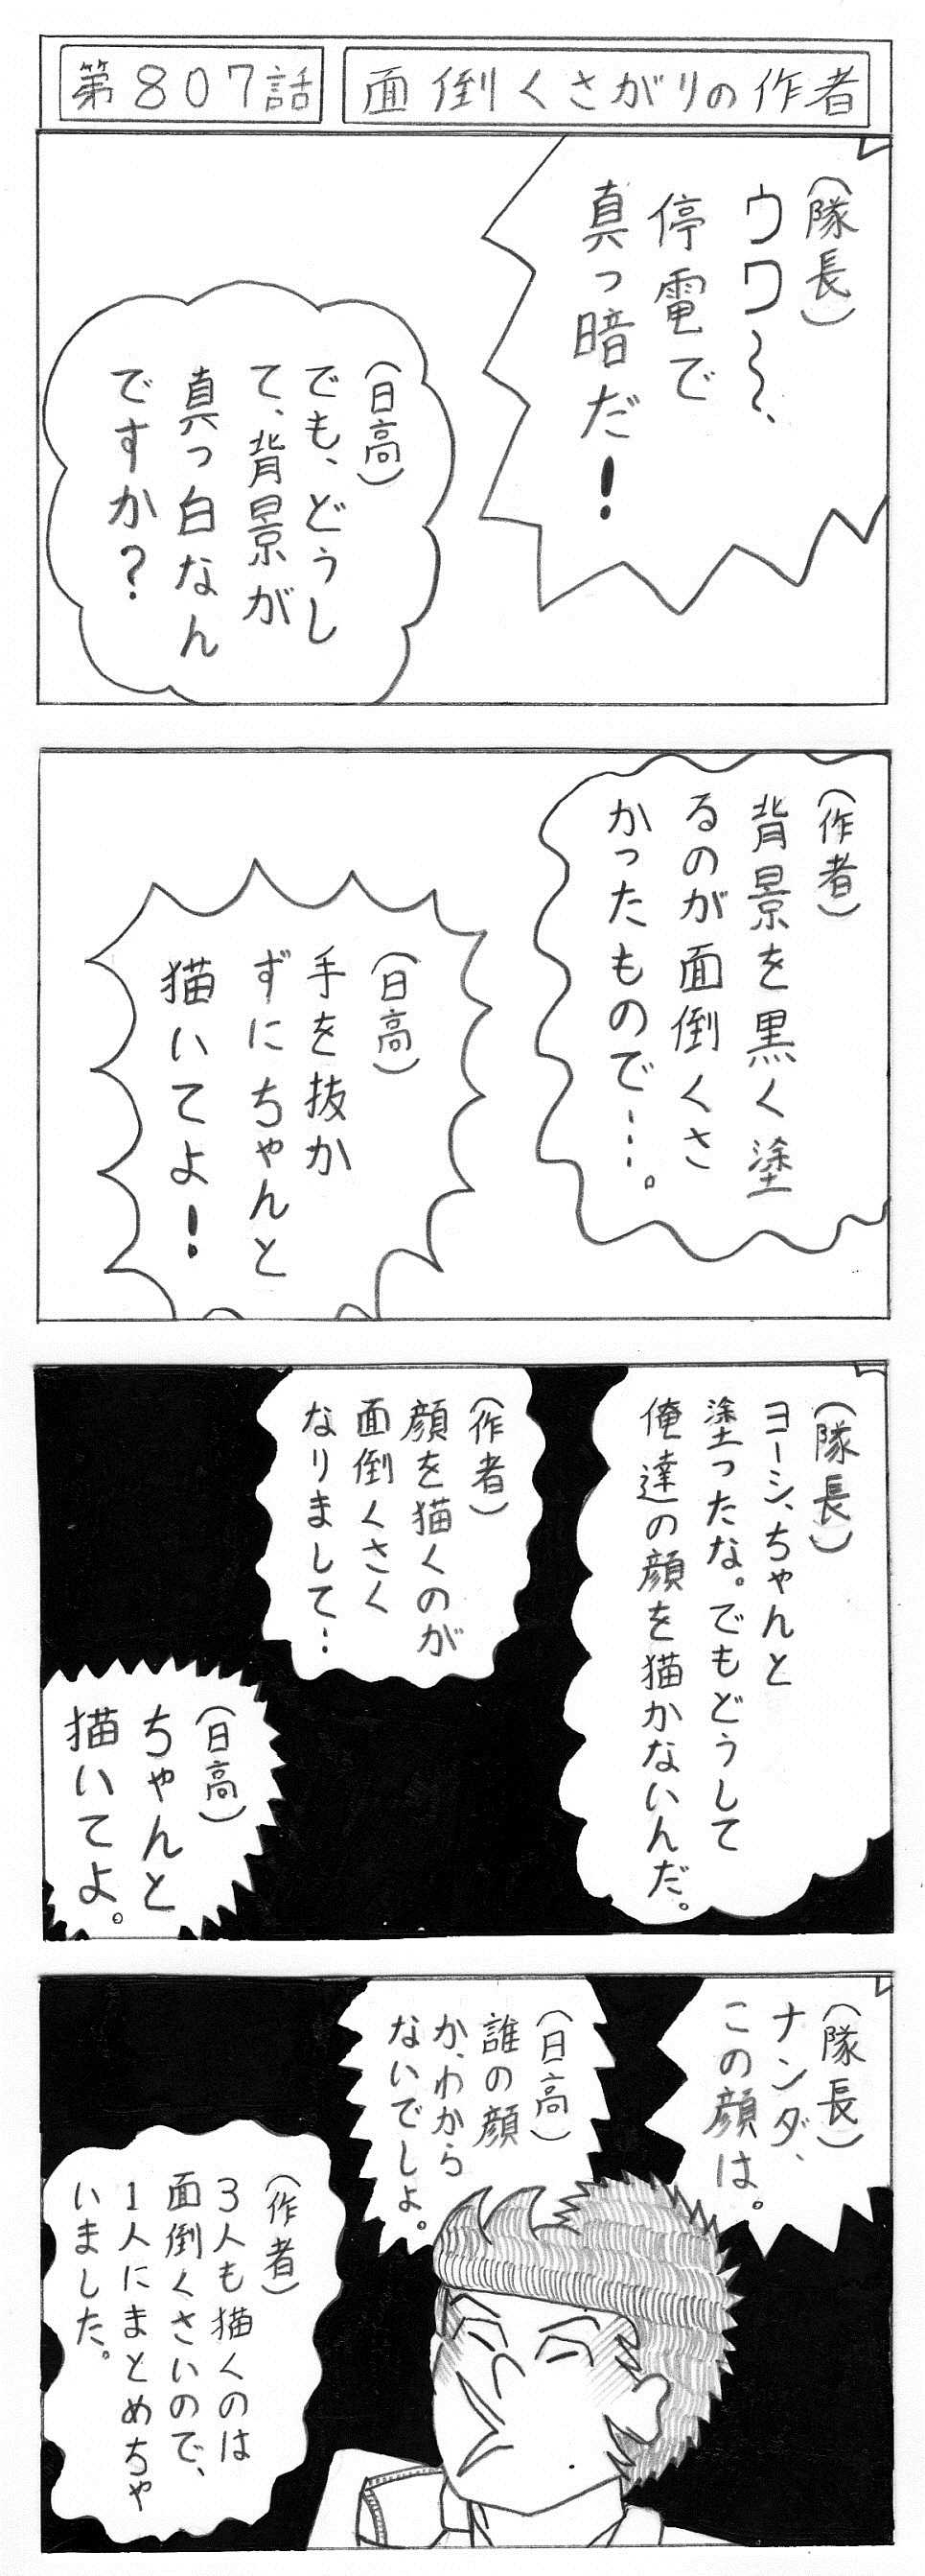 第807話
面倒くさがりの作者
(隊長)
ウワ～～、
停電で
真っ暗だ!
(日高)
でも、どうし
て、背景が
真っ白なん
ですか?
(作者)
背景を黒く塗
るのが面倒くさ
かったもので…。
(日高)
手を抜か
ずにちゃんと
描いてよ!
(隊長)
ヨーシ、ちゃんと
塗ったな。でもどうして
俺達の顔を描かないんだ。
(作者)
顔を描くのが
面倒くさく
なりまして…
(日高)
ちゃんと
描いてよ。
(隊長)
ナンダ、
この顔は。
(日高)
誰の顔
か、わから
ないでしょ。
(作者)
3人も描くのは
面倒くさいので、
1人にまとめちゃ
いました。